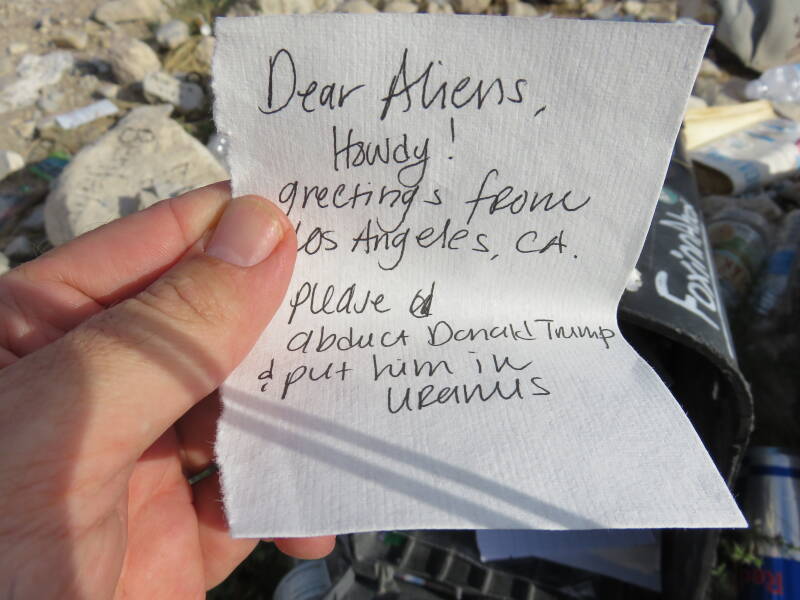 Dear Aliens,
Howdy!
greetings from
Los Angeles, CA.
please
abduct Donald Trump
& put him in
URANUS